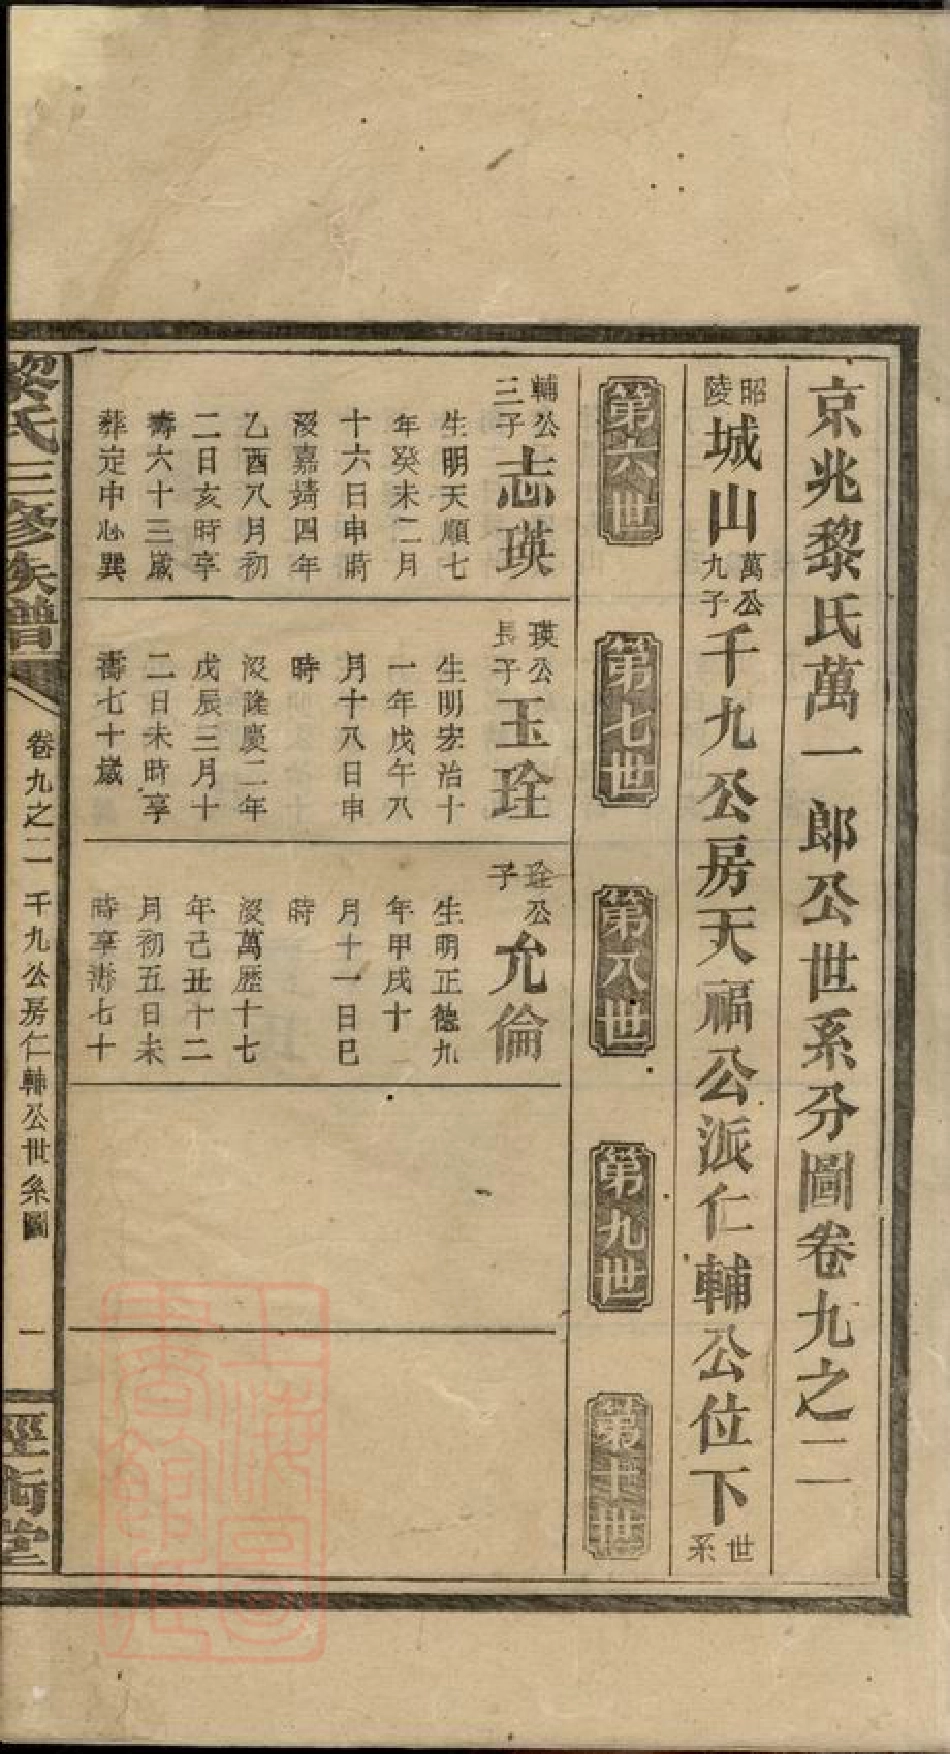 京兆黎氏萬一郎公世系分圖卷九之二
昭陵城山萬公九子千九公房天福公派仁輔公位下世系
第六世
第七世
第八世
第九世
第十世
輔公三子志瑛
生明天順七
年癸未二月
十六日申時
沒嘉靖四年
乙酉八月初
二日亥時享
壽六十三歲
葬定中心巽
瑛公長子玉珍
生明宏治十
一年戊午八
月十八日申
時
沒隆慶二年
戊辰三月十
二日未時享
壽七十歲
珍公子允倫
生明正德九
年甲戌十
月十一日巳
時
沒萬歷十七
年己丑十二
月初五日未
時享壽七十
黎氏三修族譜
卷九之二 千九公房仁輔公世系圖
一
經術堂
上海圖書館藏